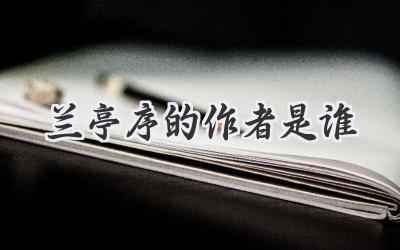 兰亭序的作者是谁